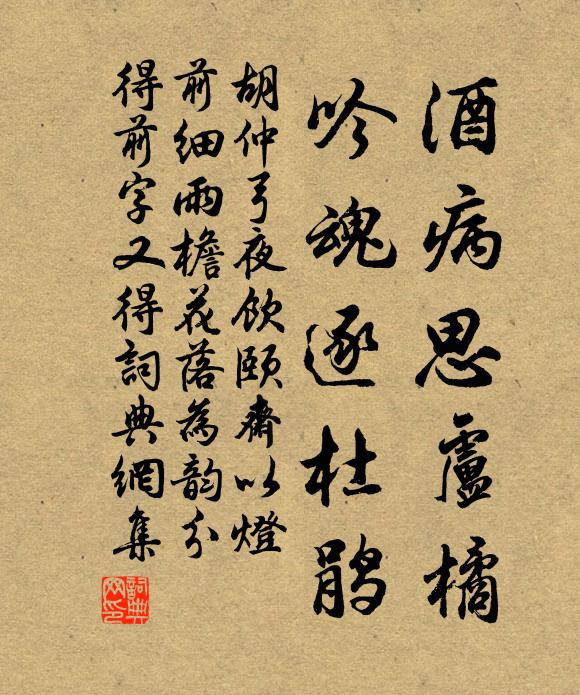 酒病思盧橘
吟魂逐杜鵑
胡仲弓夜飲頤齋以燈
前細雨檐花落為韵分
得前字又得詞典網集
詞典网印